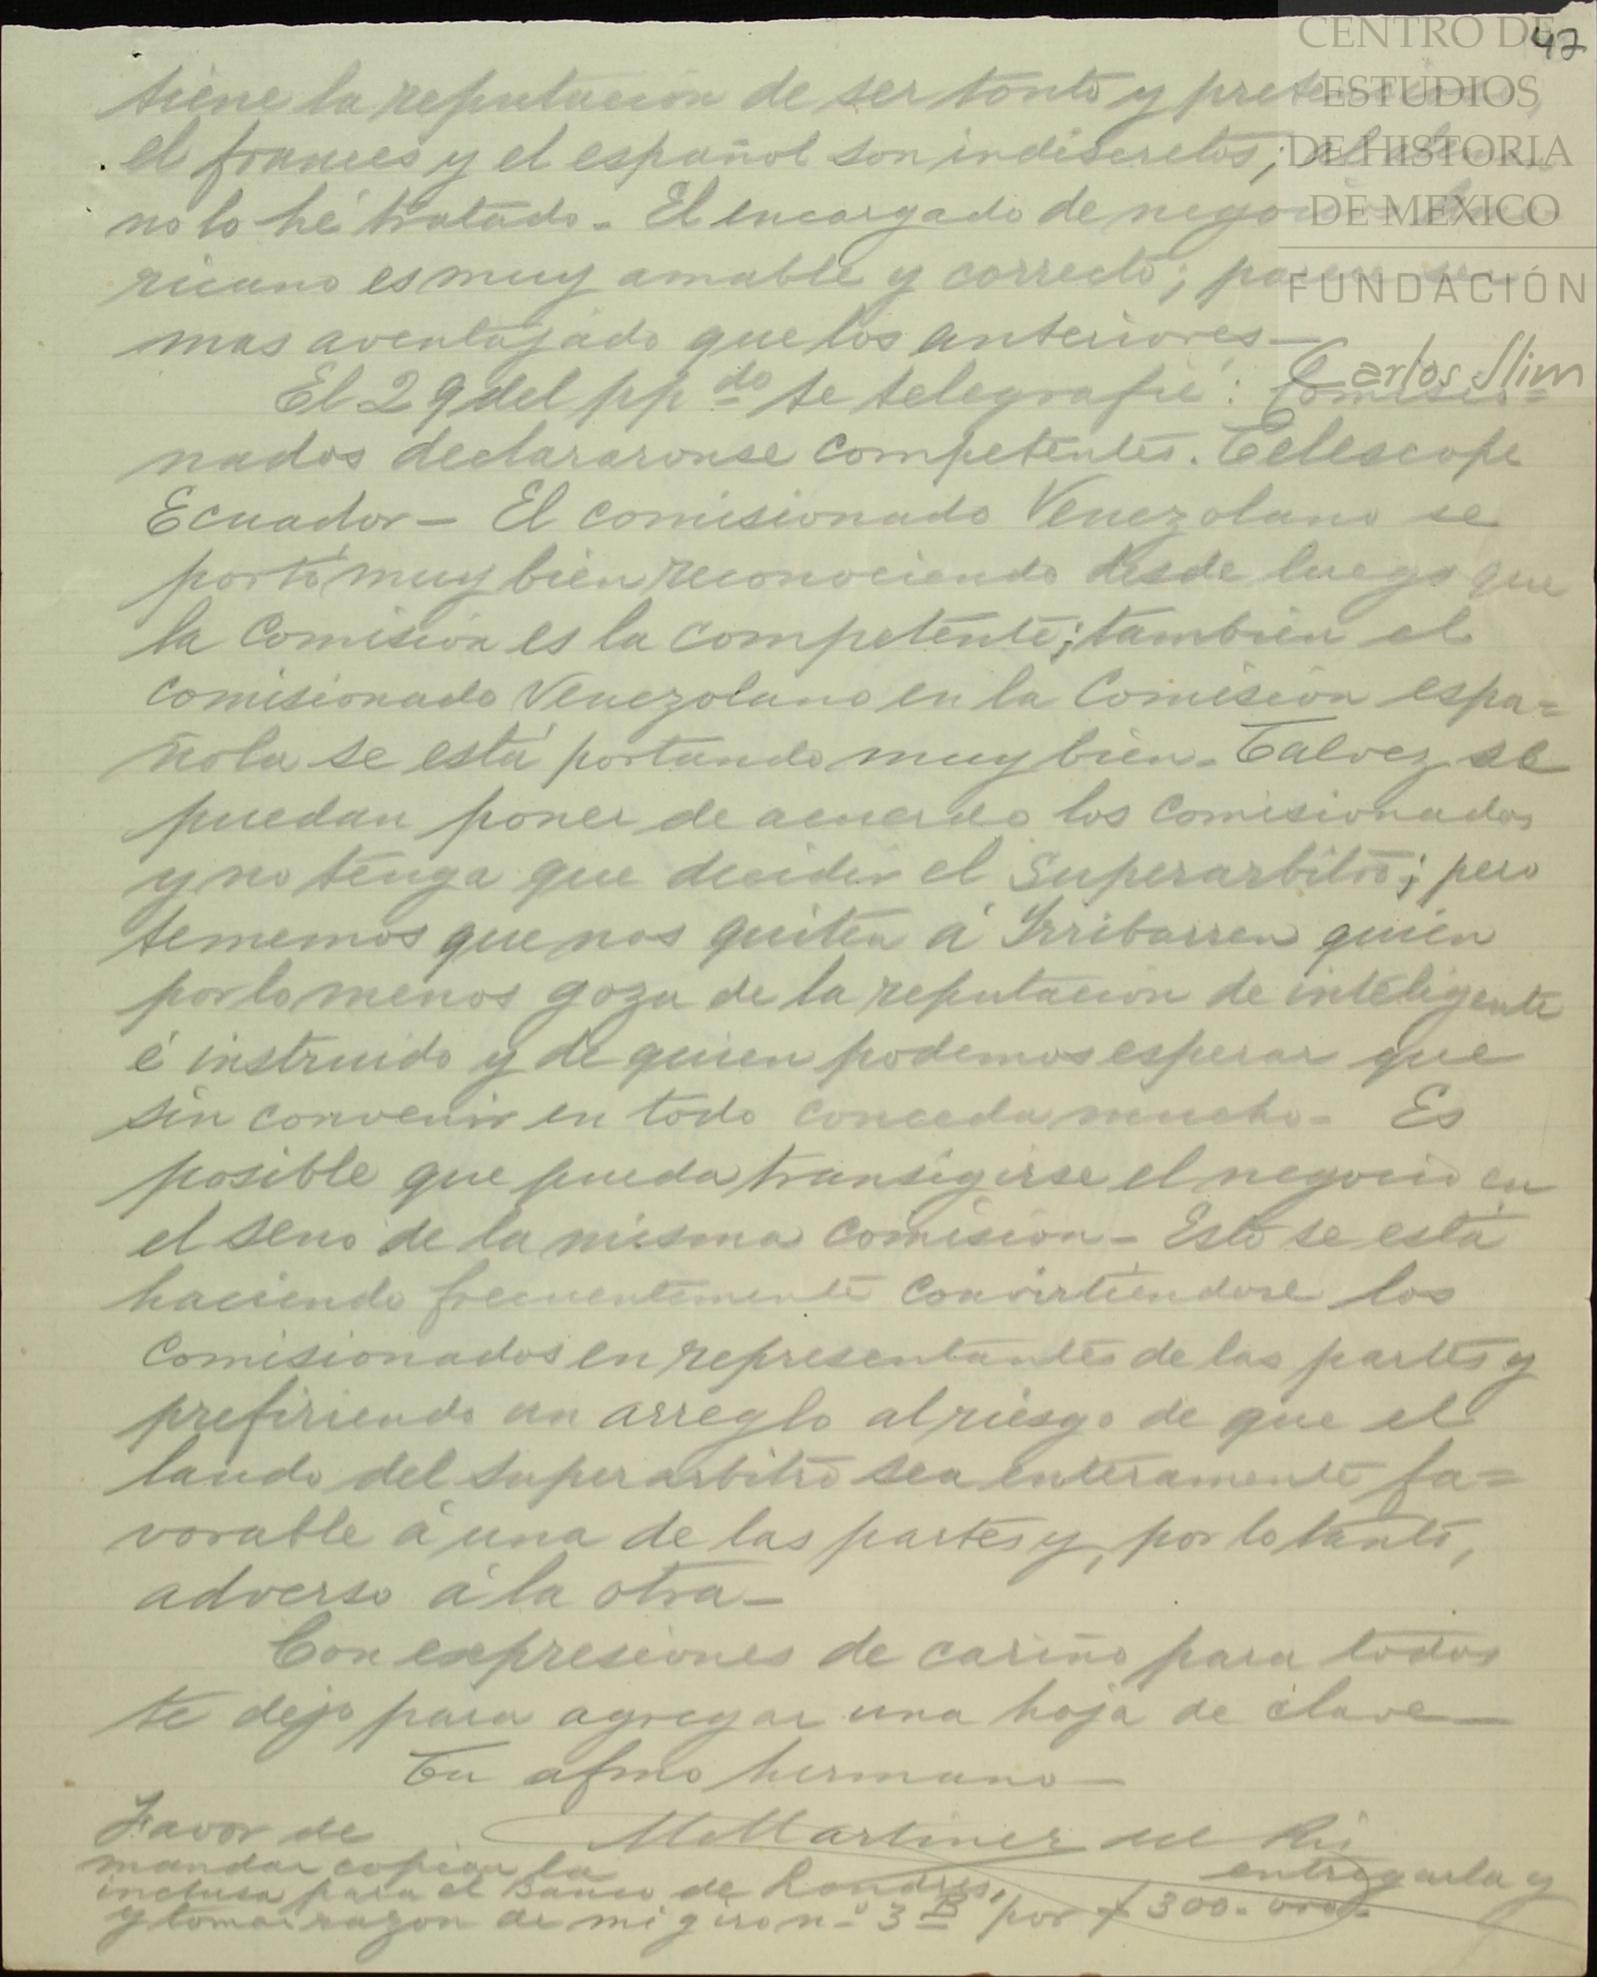 CENTRO DE
ESTUDIOS
DE HISTORIA
DE MEXICO
FUNDACIÓN
Carlos Slim
47
tiene la reputación de ser tonto y
el frances y el español son indiscretos;
no lo hé tratado. El encargado de negocios
ricano es muy amable y correcto;
mas aventajado que los anteriores—
El 29 del pp do te telegrafié: Comisio=
nados declararonse competentes. Telescope
Ecuador— El comisionado Venezolano se
portó muy bien reconociendo desde luego que
la Comisión es la competente; tambien el
comisionado Venezolano en la Comisión espa=
ñola se está portando muy bien. Talvez se
puedan poner de acuerdo los comisionados
y no tenga que decidir el Superarbitro; pero
tememos que nos quiten á Yrribarren quien
por lo menos goza de la reputacion de inteligente
é instruido y de quien podemos esperar que
sin convenir en todo conceda mucho— Es
posible que pueda transigirse el negocio en
el seno de la misma comisión— Esto se está
haciendo frecuentemente convirtiendose los
comisionados en representantes de las partes y
prefiriendo un arreglo al riesgo de que el
laudo del superarbitro sea enteramente fa=
vorable á una de las partes y, por lo tanto,
adverso á la otra—
Con expresiones de cariño para todos
te dejo para agregar una hoja de clave—
Tu afmo hermano—
M Martinez del Rio
Favor de
mandar copiar la entregarla y
inclusa para el Banco de Londres,
y tomar razon de mi giro nº 3 B por £ 300. oro.